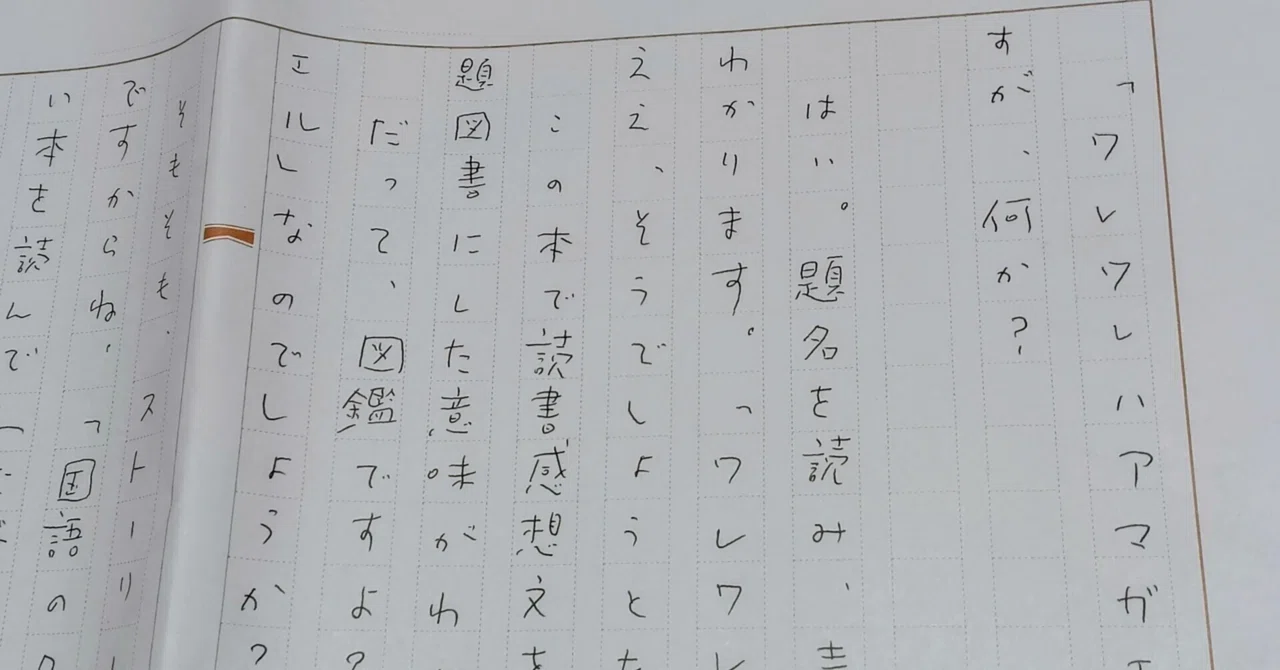 「ワレワレハアマガエ
すが、何か？
はい。題名を読み、
わかります。「ワレワレ
ええ、そうでしょうとも
この本で読書感想文を
題図書にした意味がわ
だって、図鑑ですよ？
エルしなのでしょうか？
そもそも、ストーリー
ですからね、「国語の
い本を読んで